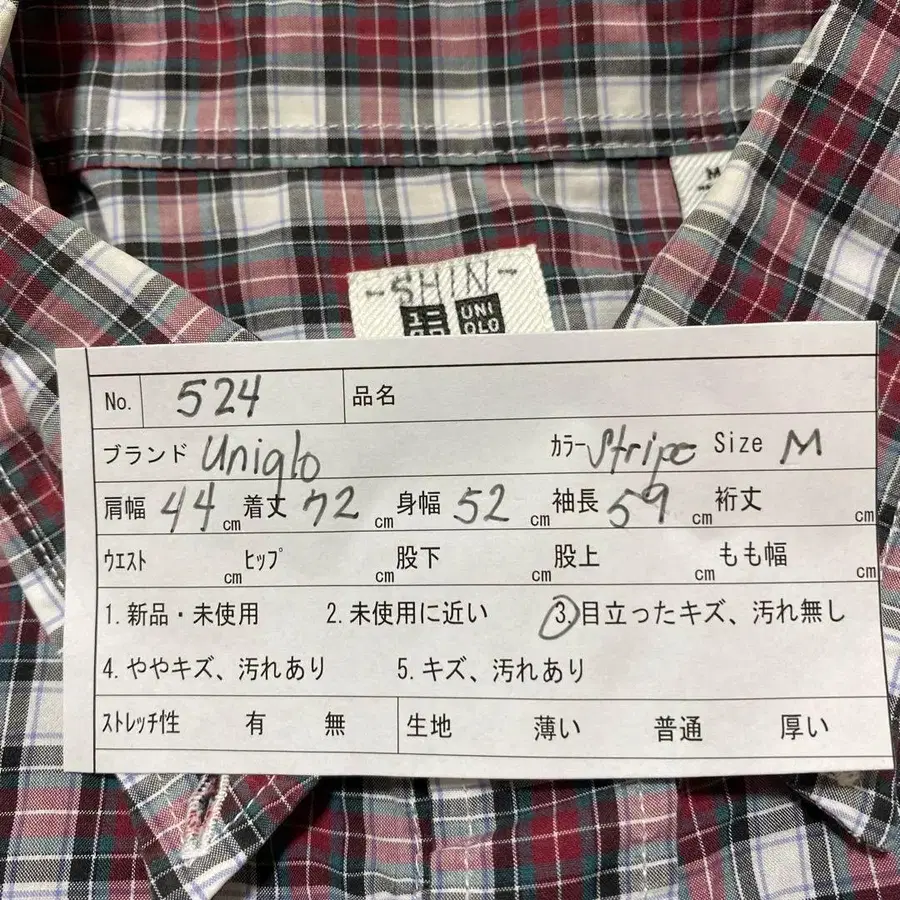 M
-SHIN-
ユニ UNI
クロ QLO
No. 524 品名
ブランド Uniqlo カラー Stripe Size M
肩幅 44 cm 着丈 72 cm 身幅 52 cm 袖長 59 cm 裄丈 cm
ウエスト cm ヒップ cm 股下 cm 股上 cm もも幅 cm
1. 新品・未使用 2. 未使用に近い 3. 目立ったキズ、汚れ無し
4. ややキズ、汚れあり 5. キズ、汚れあり
ストレッチ性 有 無 生地 薄い 普通 厚い